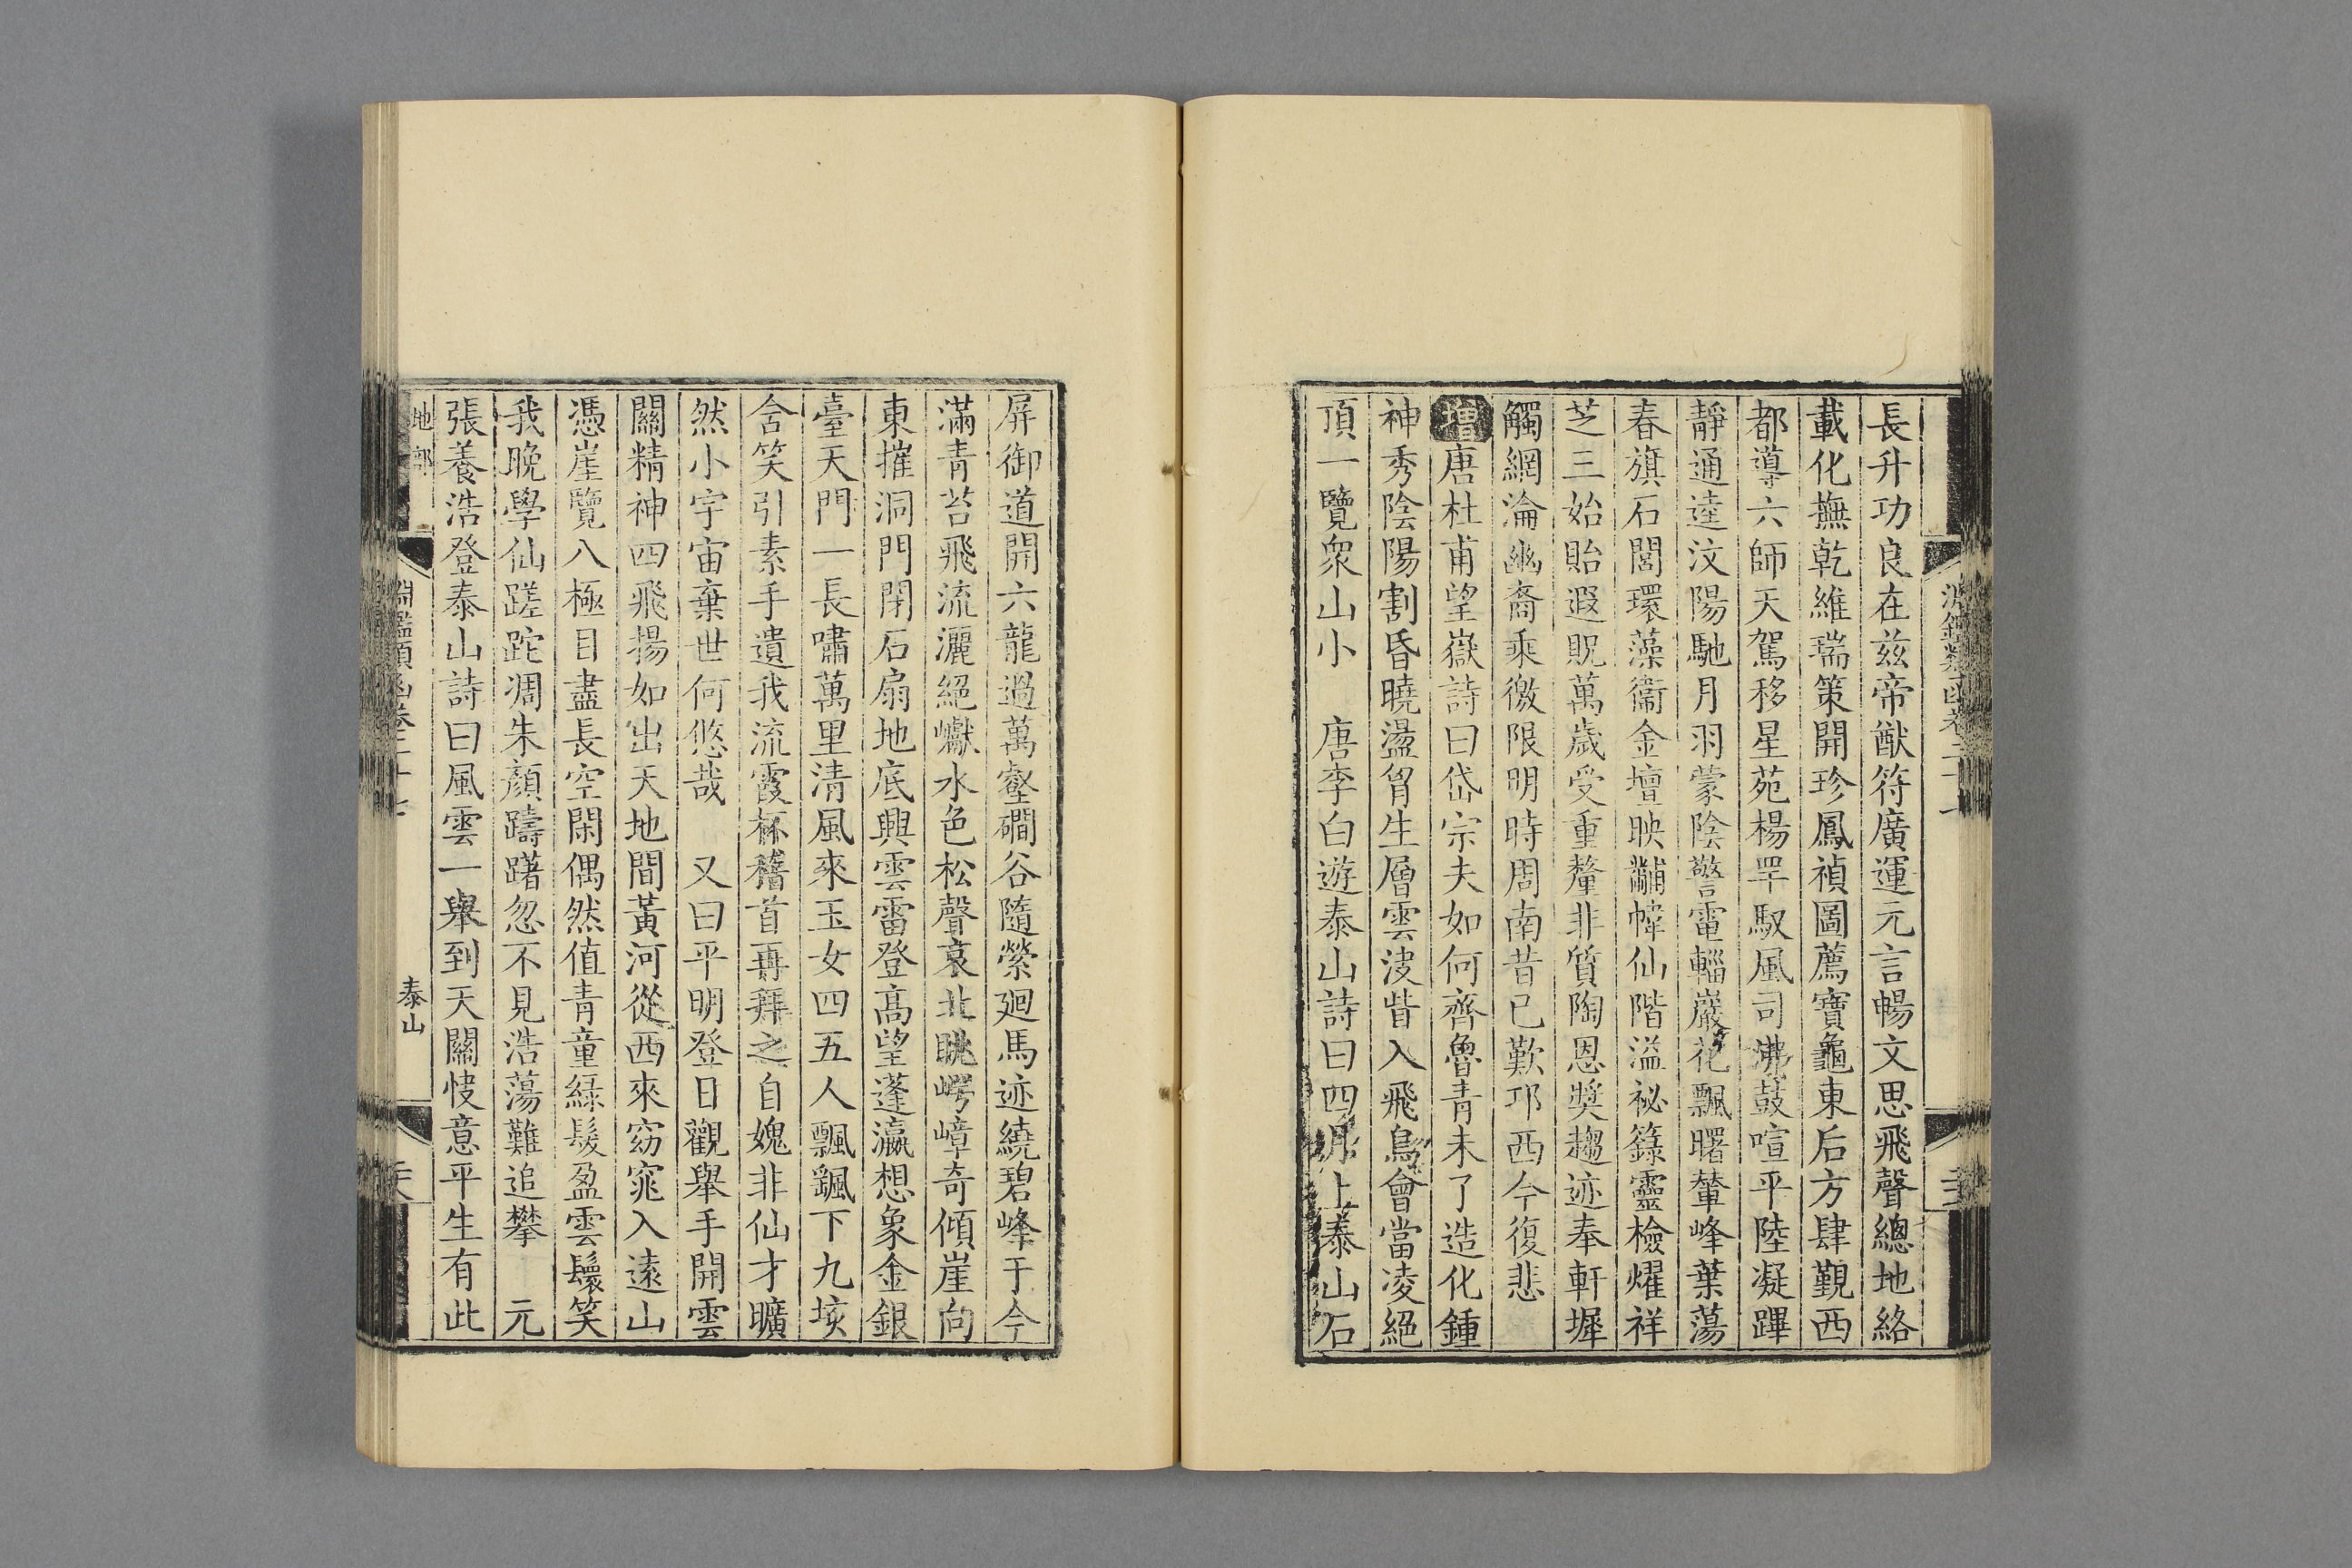 長升功良在兹帝猷符廣運元言暢文思飛聲總地絡
載化撫乾維瑞策開珍鳳禎圖薦寶龜東后方肆覲西
都導六師天駕移星苑楊䍐馭風司沸鼓喧平陸凝蹕
靜通逵汶陽馳月羽蒙陰警電輜巖花飄曙輦峰葉蕩
春旗石閭環藻衞金壇映黼幃仙階溢祕籙靈檢燿祥
芝三始貽遐貺萬歲受重釐非質陶恩奬趨迹奉軒墀
觸網淪幽裔乘徼限明時周南昔已歎邛西今復悲
增唐杜甫望嶽詩曰岱宗夫如何齊魯青未了造化鍾
神秀陰陽割昏曉盪胷生層雲决眥入飛鳥會當凌絕
頂一覽衆山小　唐李白遊泰山詩曰四月上泰山石
屏御道開六龍過萬壑磵谷隨縈廻馬迹繞碧峰于今
滿青苔飛流灑絕巘水色松聲哀北眺崿嶂奇傾崖向
東摧洞門閉石扇地底興雲雷登高望蓬瀛想象金銀
臺天門一長嘯萬里清風來玉女四五人飄颻下九垓
含笑引素手遺我流霞杯稽首再拜之自媿非仙才曠
然小宇宙棄世何悠哉　又曰平明登日觀舉手開雲
關精神四飛揚如出天地間黃河從西來窈窕入遠山
憑崖覽八極目盡長空閑偶然值青童緑髮盈雲鬟笑
我晚學仙蹉跎凋朱顏躊躇忽不見浩蕩難追攀　元
張養浩登泰山詩曰風雲一舉到天關快意平生有此
地部
淵鑑類函卷二十七
泰山